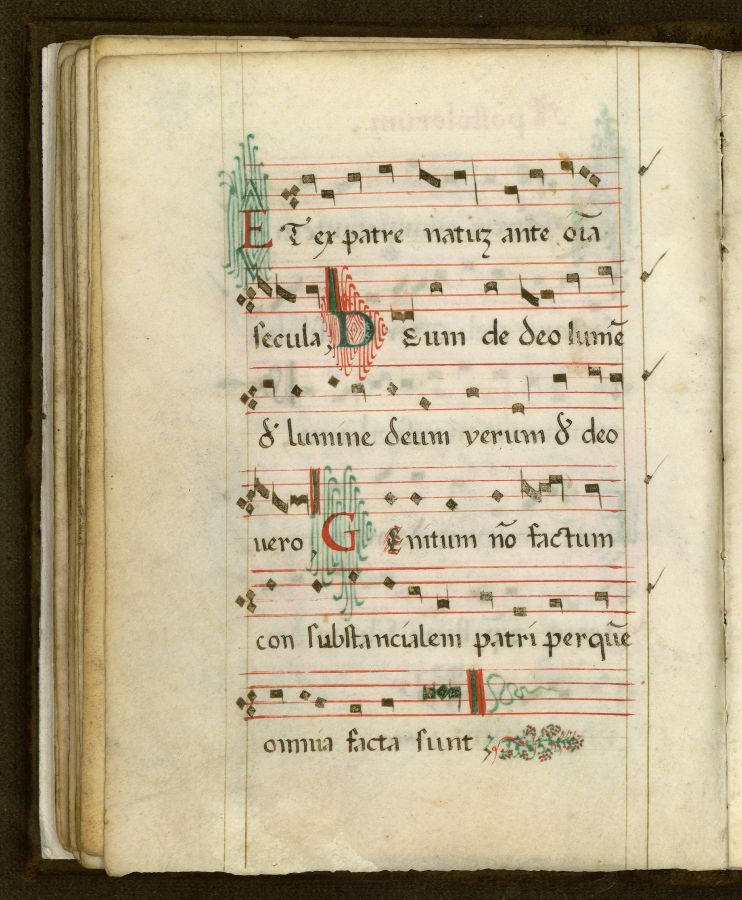 ET ex patre natuʒ ante oĩa
secula, DEum de deo lumẽ
d' lumine deum verum d' deo
uero, GEnitum nõ factum
con substancialem patri per quẽ
omnia facta sunt